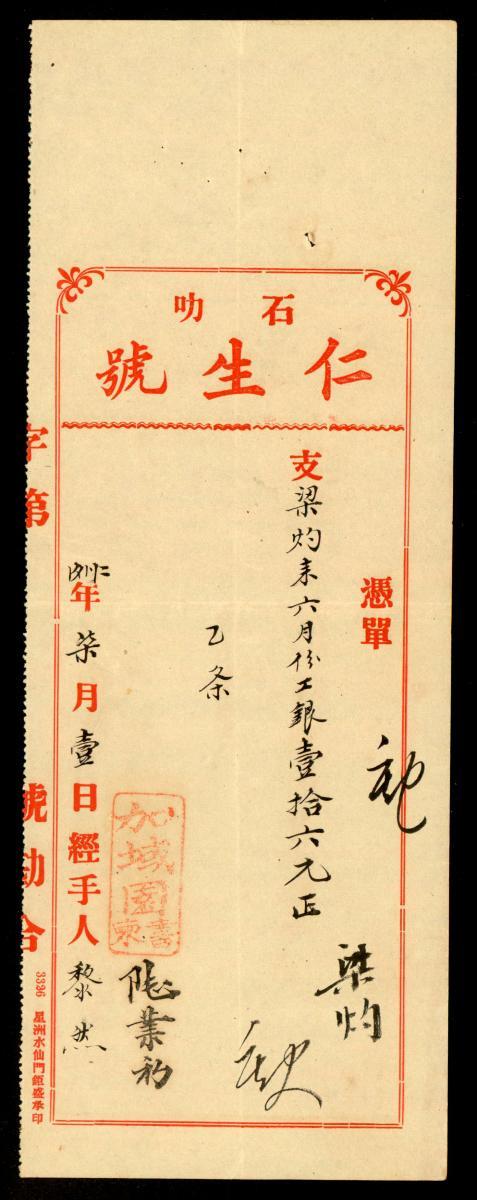 石叻
仁生號
憑單
支梁灼来六月份工銀壹拾六元正
梁灼
乙条
加域園
書柬
業初
年柒月壹日經手人黎然
字第 號勘合
3326 星洲水仙門鉅盛承印